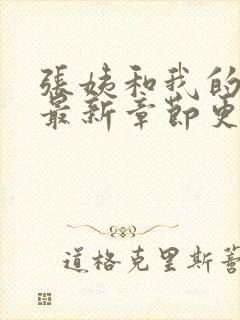 張姨和我的
最新章節更
道格克里斯蒂